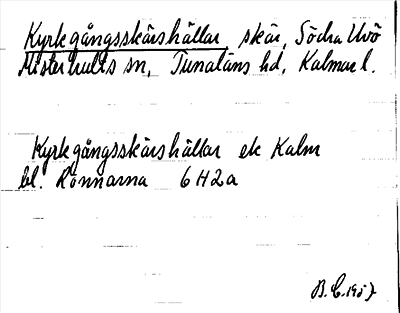 Kyrkgångsskärshällar, skär, Södra Uvö
Misterhults sn, Tunaläns hd, Kalmar l.
Kyrkgångsskärshällar ek Kalm
bl. Rönnarna 6H2a
B.C. 1957